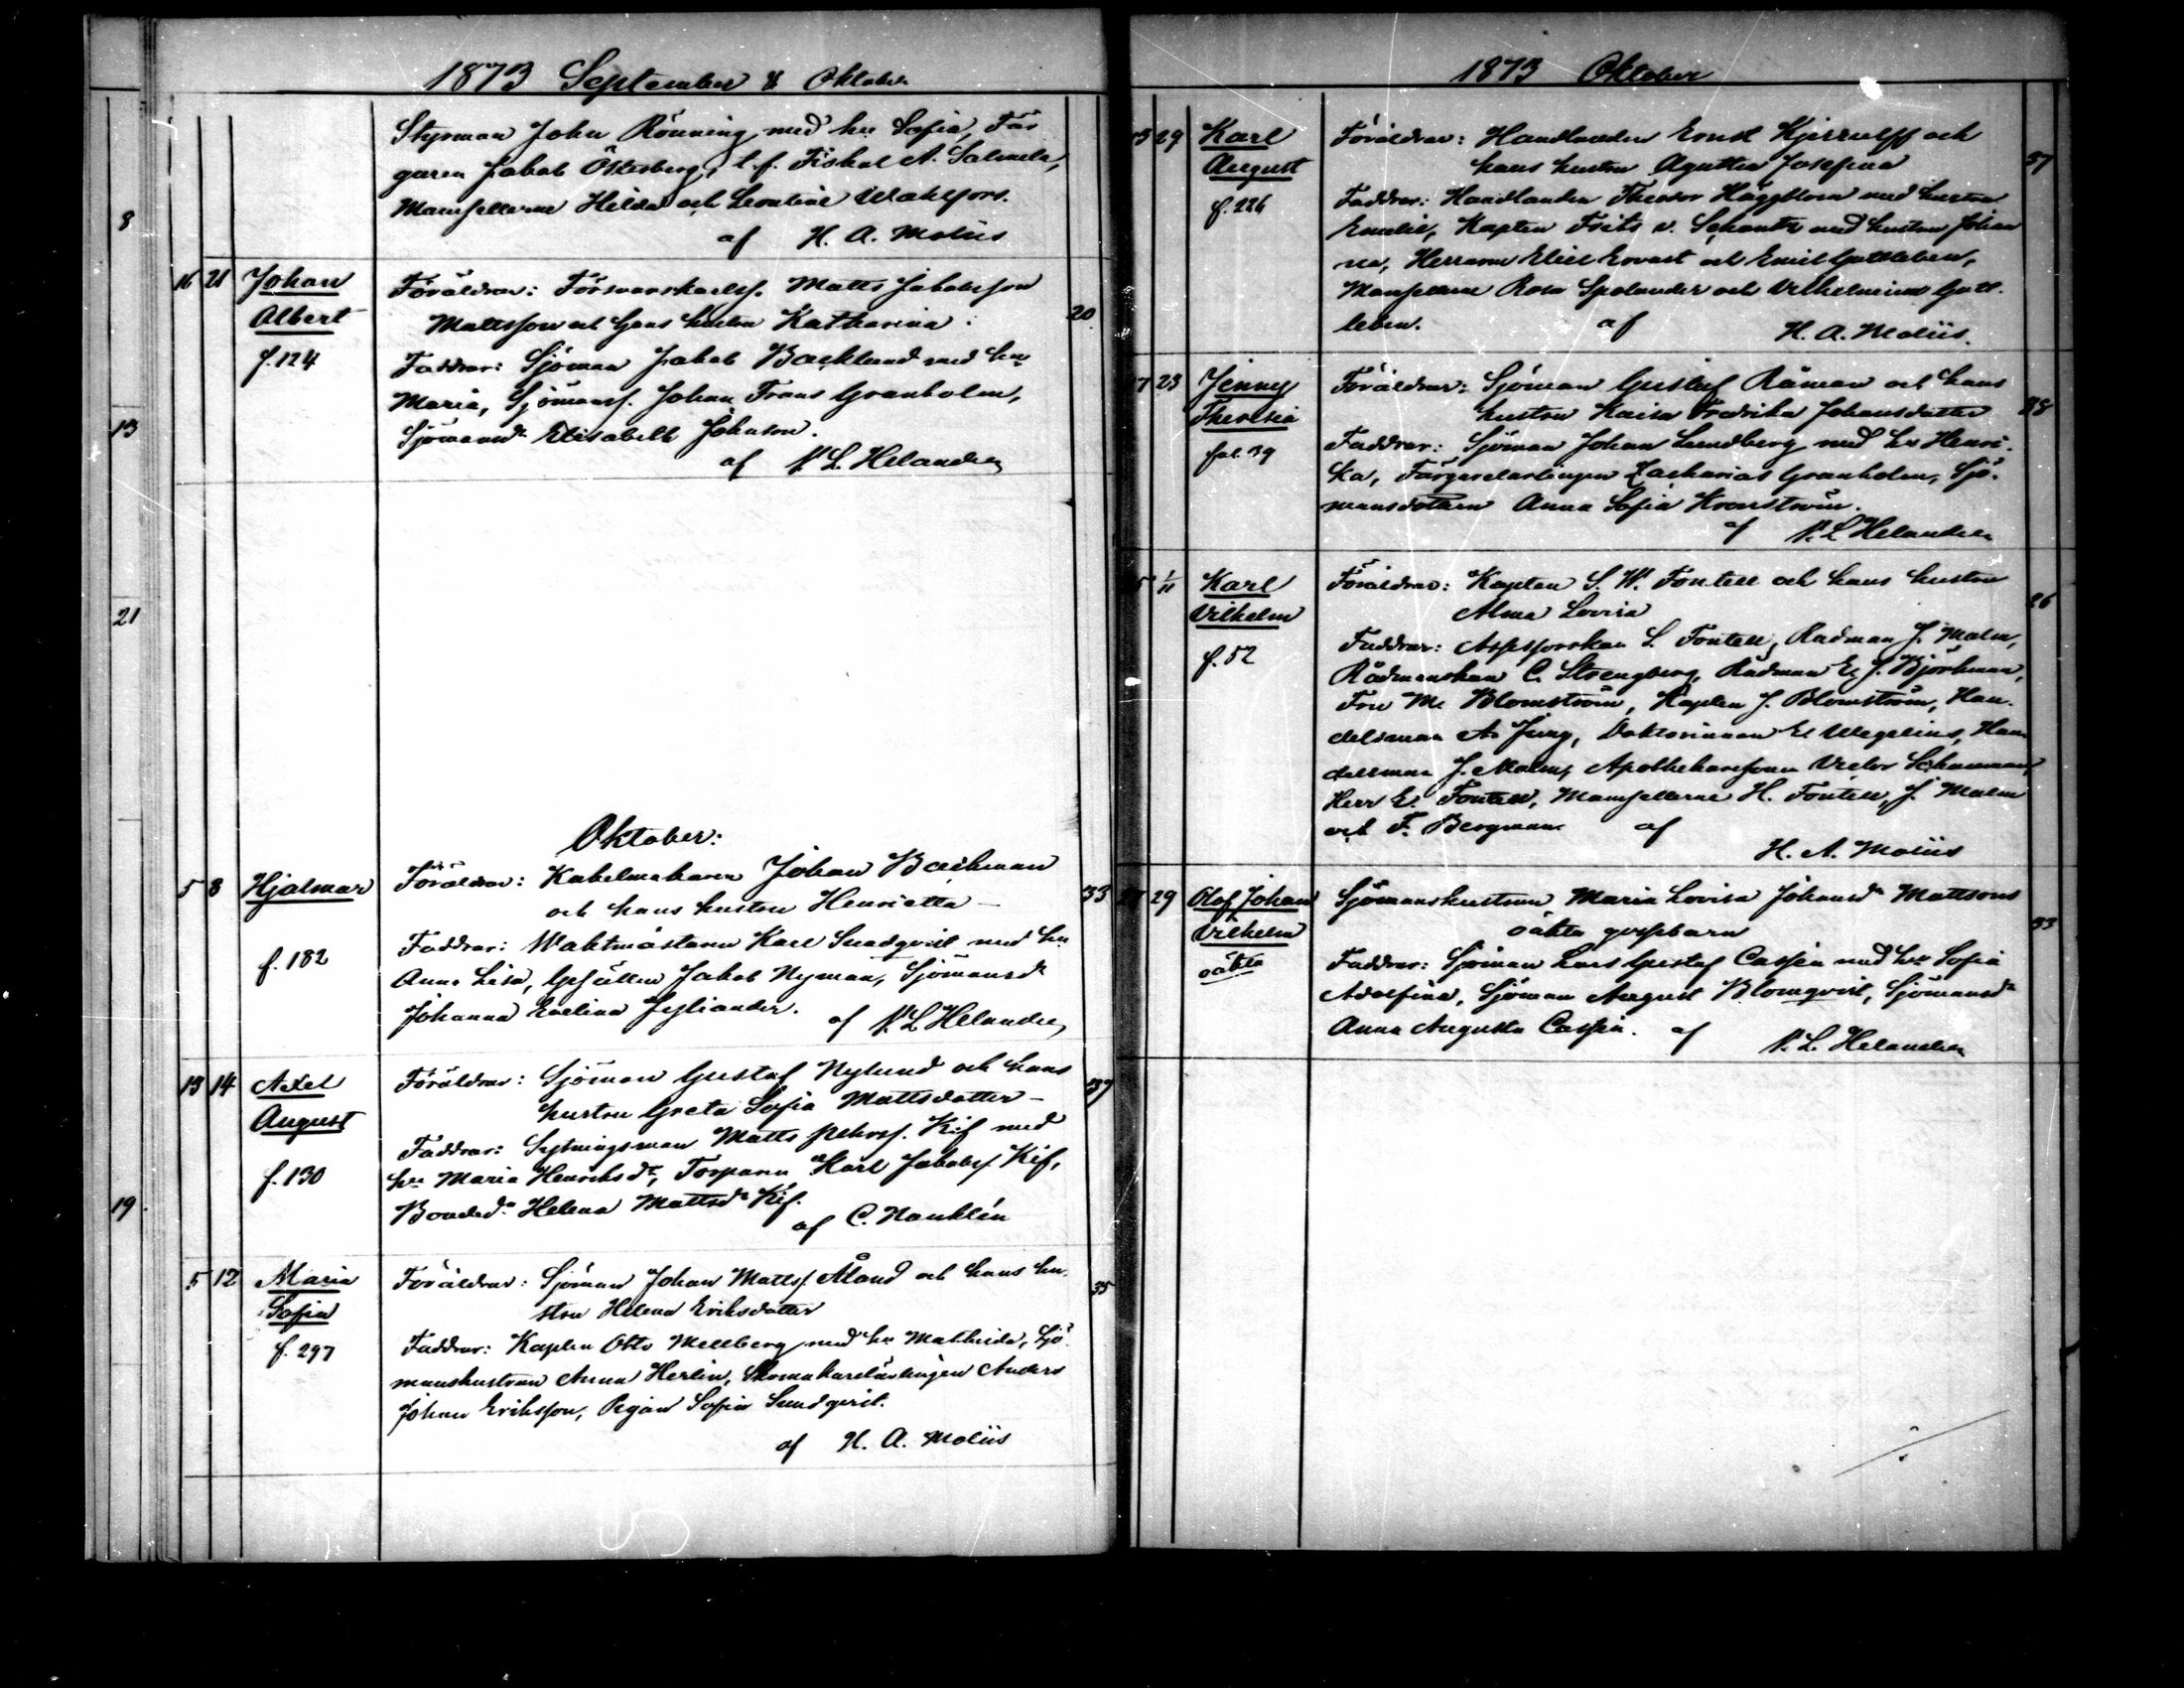 1873 September & Oktober
Styrman John Rönning med hu Sofia, Fär
garen Jakob Östesberg, t.f. Fiskal A. Salmela,
Mamsellerne Hilda och Leontine Wahlfors.
af H. A. Moliis
8
16 21 Johan Föräldrar: Försvarskarlss. Matts Jakobsson
Albert Mattsson och hans hustru Katharina: 20
f. 124 Faddrar: Sjöman Jakob Backlund med hu
Maria, Sjömanss. Johan Frans Granholm,
Sjömansdr Elisabeth Johnson.
af N. L. Helander
13
21
Oktober:
5 8 Hjalmar Föräldrar: Kakelmakaren Johan Backman
och hans hustru Henrietta – 33
f. 182 Faddrar: Waktmästaren Karl Sundqvist med hu
Anna Lisa, Gesällen Jakob Nyman, Sjömansdr
Johanna Evelina
af N. L. Helander
13 14 Axel Föräldrar: Sjöman Gustaf Nylund och hans 37
August hustru Greta Sofia Mattsdotter –
Faddrar: Sytningsman Matts Pehrss. Kif med
f. 130 hu Maria Henriksdr, Torparen Karl Jakobss. Kif,
19
Bonded. Helena Mattsdr Kif.
af C. Nauklén
5 12 Maria Föräldrar: Sjöman Johan Mattss. Åland och hans hu- 35
Sofia stru Helena Eriksdotter
f. 297 Faddrar: Kapten Otto Mellberg med hu Mathilda, Sjö
manshustrun Anna Herlin, Skomakarelärlingen Anders
Johan Eriksson, Pigan Sofia Sundqvist.
af H. A. Moliis
1873 Oktober
29 Karl Föräldrar: Handlanden Ernst Kjerrulff och
August hans hustru Agatha Josefina 57
f. 226 Faddrar: Handlanden Theodor Häggblom med hustru
Emelie, Kapten Frits v. Schantz med hustru Johan
na, Herrarne Eliel Ervast och Emil Gottleben,
Mamsellerne Rosa Spolander och Vilhelmina Gott-
leben. af H. A. Moliis.
23 Jenny Föräldrar: Sjöman Gustaf Råman och hans
Theresia hustru Kaisa Fredrika Johansdotter 28
fol. 39 Faddrar: Sjöman Johan Lundberg med hu Henri-
ka, Färgerelärlingen Zacharias Granholm, Sjö-
mansdottren Anna Sofia Kronström.
af N. L. Helander
1/11 Karl Föräldrar: Kapten S. W. Fontell och hans hustru
Vilhelm Alma Lovisa 26
f. 52 Faddrar: Assessorskan L. Fontell, Rådman J. Malm,
Rådmanskan C. Strengberg, Rådman E. J. Björkman,
Fru M. Blomström, Kapten J. Blomström, Han-
delsman A. Jung, Doktorinnan E. Wegelius, Han
delsman J. Malm, Apothekaresonen Victor Schauman,
Herr E. Fontell, Mamsellerne H. Fontell, J. Malm
och F. Bergman af
H. A. Moliis
29 Olof Johan Sjömanshustrun Maria Lovisa Johansdr Mattsons
Vilhelm oäkta gossebarn 33
oäkta Faddrar: Sjöman Lars Gustaf Cassén med hu Sofia
Adolfina, Sjöman August Blomqvist, Sjömansdr
Anna Augusta Cassén. af N. L. Helander